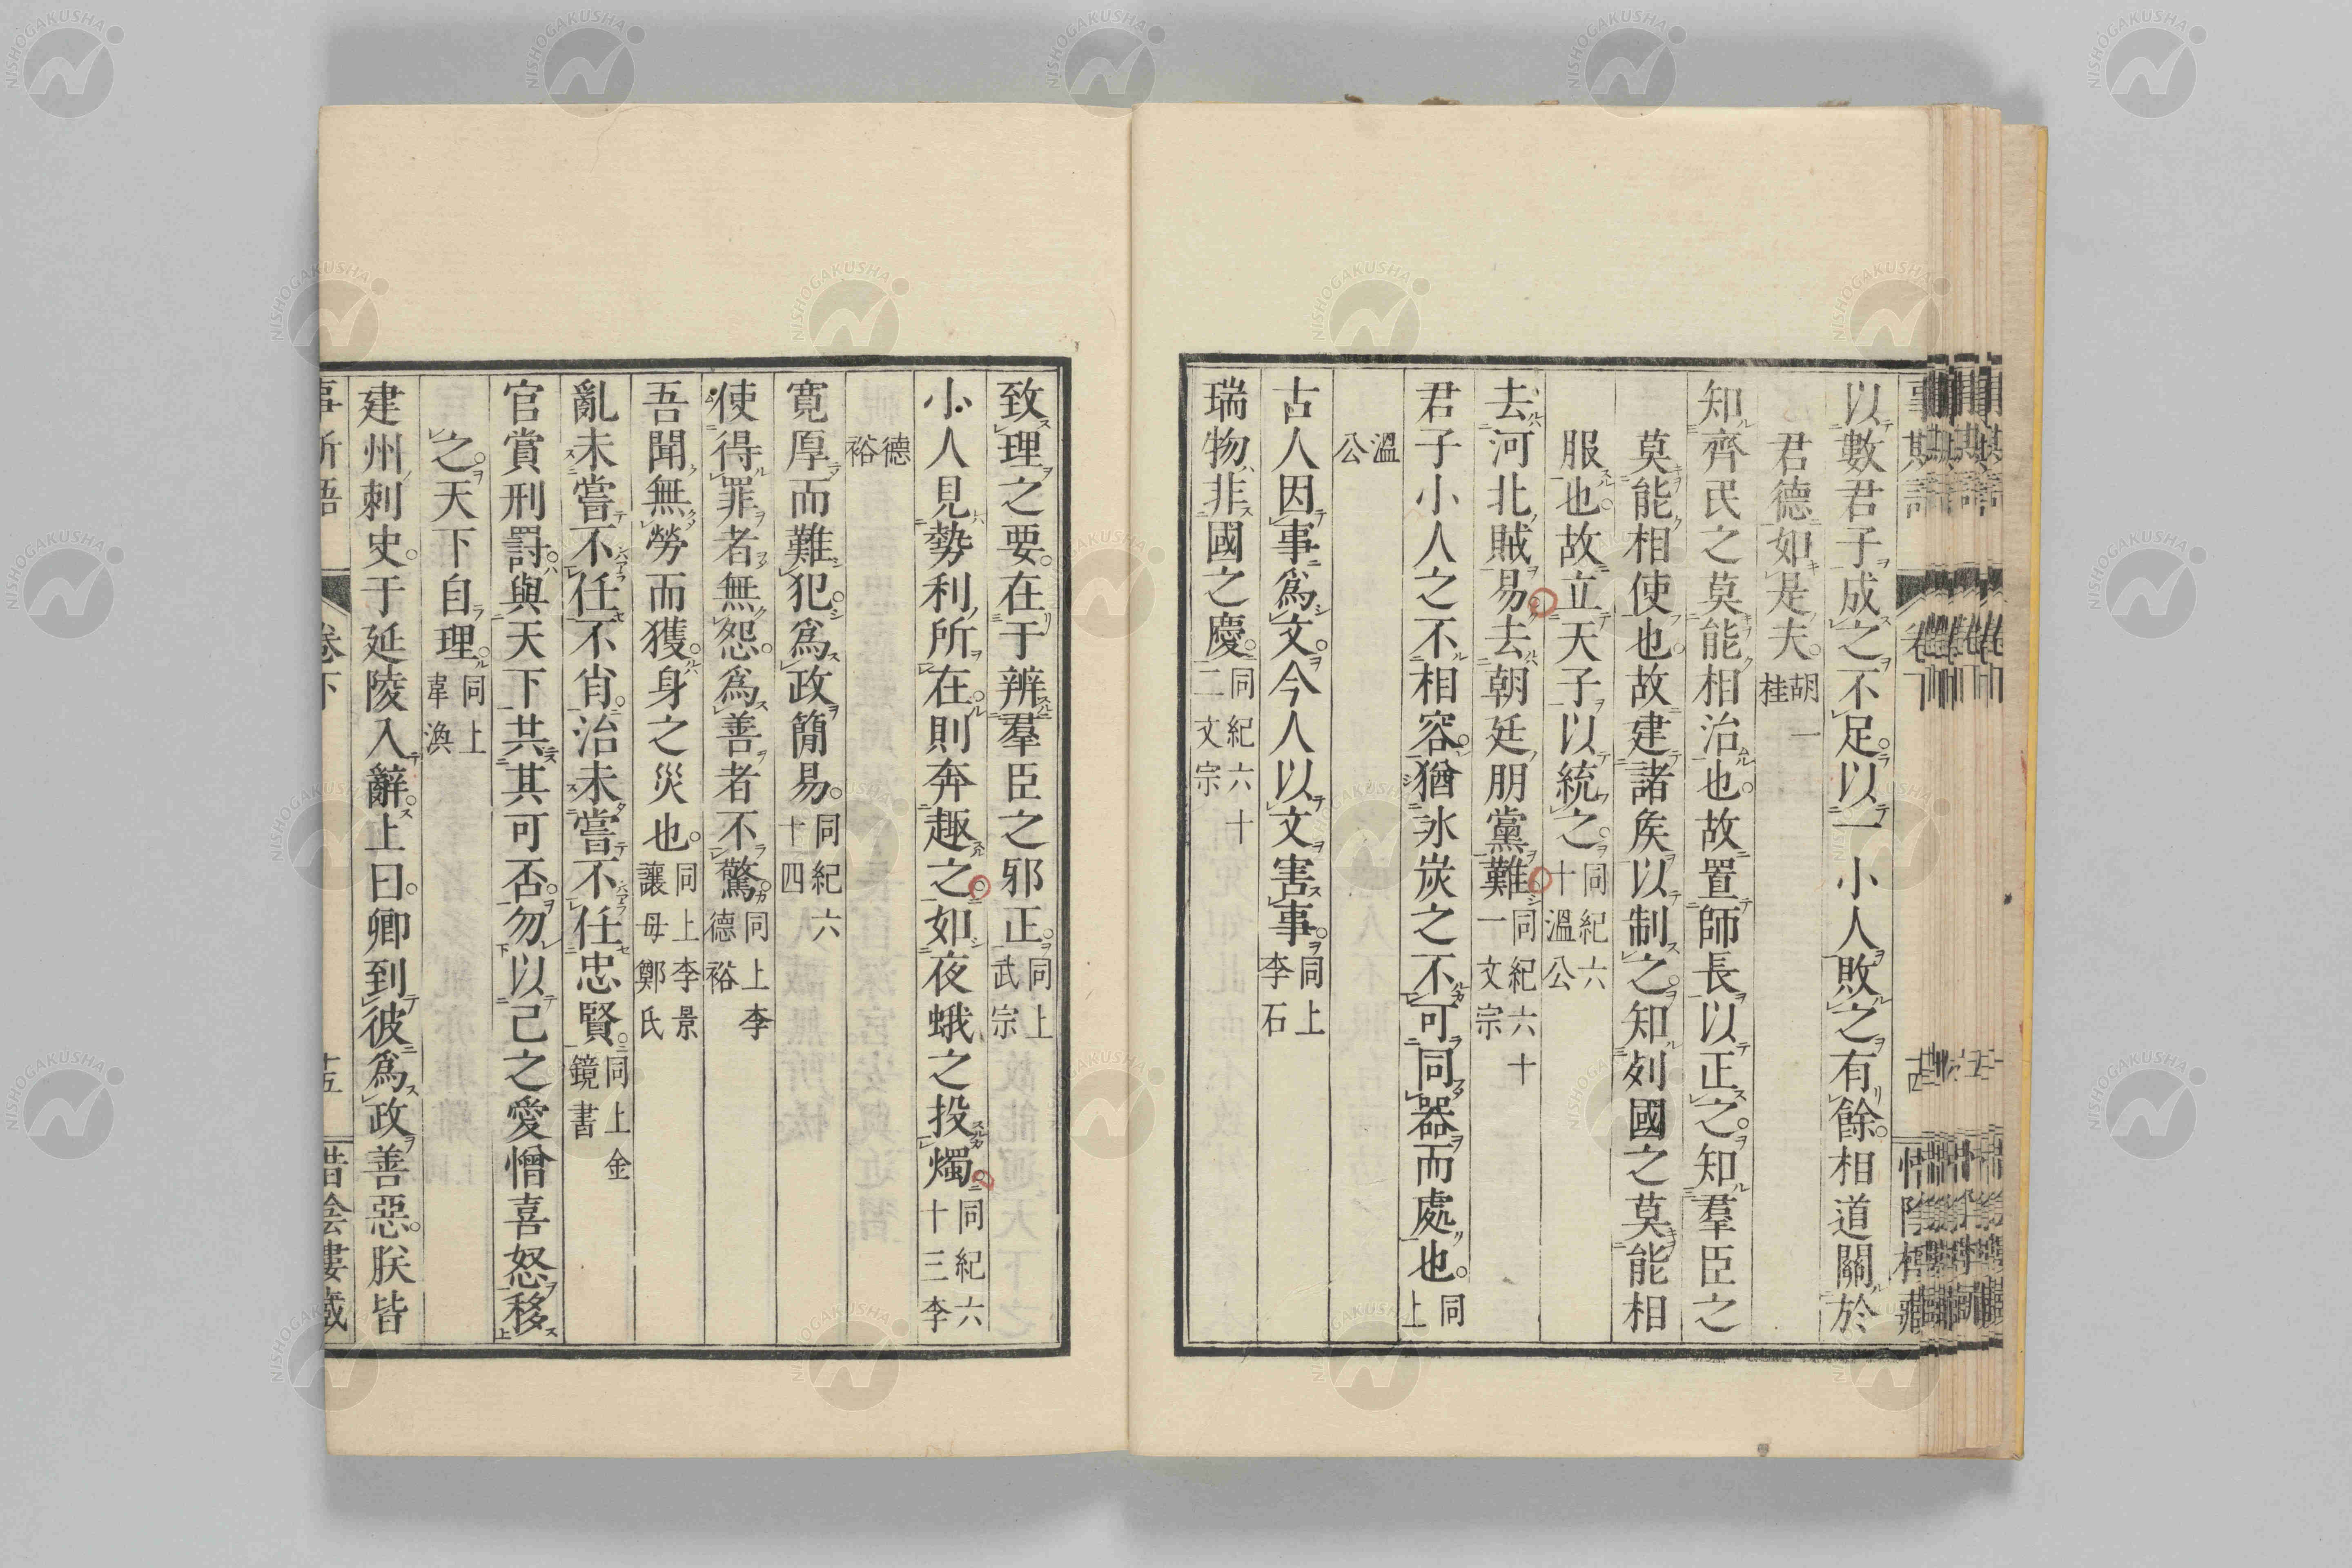 以數君子成之不足以一小人敗之有餘相道關於
君德如是夫胡一桂
知齊民之莫能相治也故置師長以正之知羣臣之
莫能相使也故建諸矦以制之知列國之莫能相
服也故立天子以統之同紀六十溫公
去河北賊易去朝廷朋黨難同紀六十一文宗
君子小人之不相容猶冰炭之不可同器而處也同上
溫公
古人因事爲文今人以文害事同上李石
瑞物非國之慶同紀六十二文宗
致理之要在于辨羣臣之邪正同上武宗
小人見勢利所在則奔趣之如夜蛾之投燭同紀六十三李
德裕
寛厚而難犯爲政簡易同紀六十四
使得罪者無怨爲善者不驚同上李德裕
吾聞無勞而獲身之災也同上李景讓母鄭氏
亂未嘗不任不肖治未嘗不任忠賢同上金鏡書
官賞刑罰與天下共其可否勿以己之愛憎喜怒移
之天下自理同上韋澳
建州刺史于延陵入辭上曰卿到彼爲政善惡朕皆
卷下
十五
惜陰樓藏
NISHOGAKUSHA